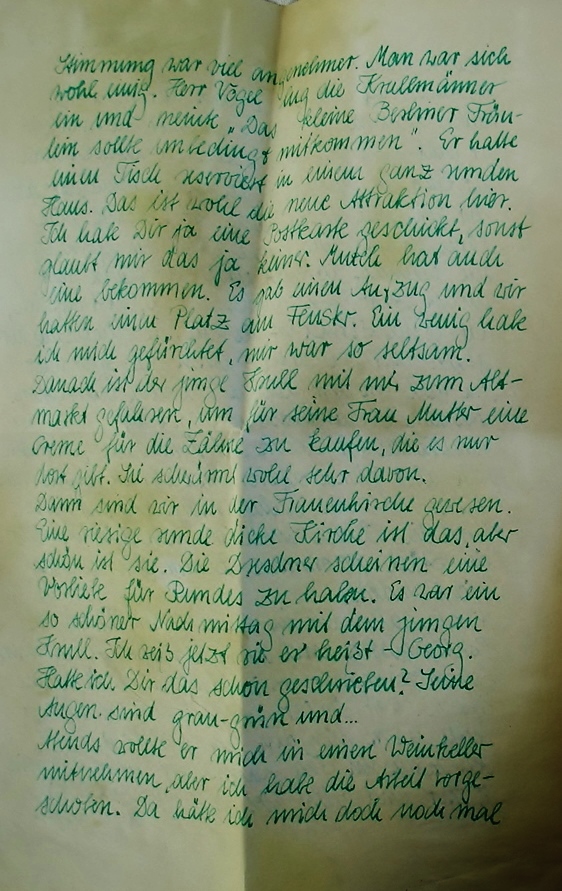 Stimmung war viel angenehmer. Man war sich
wohl einig. Herr Vogel lud die Krullmänner
ein und meinte „Das kleine Berliner Fräu-
lein sollte unbedingt mitkommen“. Er hatte
einen Tisch reserviert in einem ganz runden
Haus. Das ist wohl die neue Attraktion hier.
Ich habe Dir ja eine Postkarte geschickt, sonst
glaubt mir das ja keiner. Mutch hat auch
eine bekommen. Es gab einen Aufzug und wir
hatten einen Platz am Fenster. Ein wenig habe
ich mich gefürchtet, mir war so seltsam.
Danach ist der junge Krull mit mir zum Alt-
markt gefahren, um für seine Frau Mutter eine
Creme für die Zähne zu kaufen, die es nur
dort gibt. Sie schwärmt wohl sehr davon.
Dann sind wir in der Frauenkirche gewesen.
Eine riesige runde dicke Kirche ist das, aber
schön ist sie. Die Dresdner scheinen eine
Vorliebe für Rundes zu haben. Es war ein
so schöner Nachmittag mit dem jungen
Krull. Ich weiß jetzt wie er heißt - Georg.
Hatte ich Dir das schon geschrieben? Seine
Augen sind grau-grün und...
Abends wollte er mich in einen Weinkeller
mitnehmen, aber ich habe die Arbeit vorge-
schoben. Da hätte ich mich doch noch mal